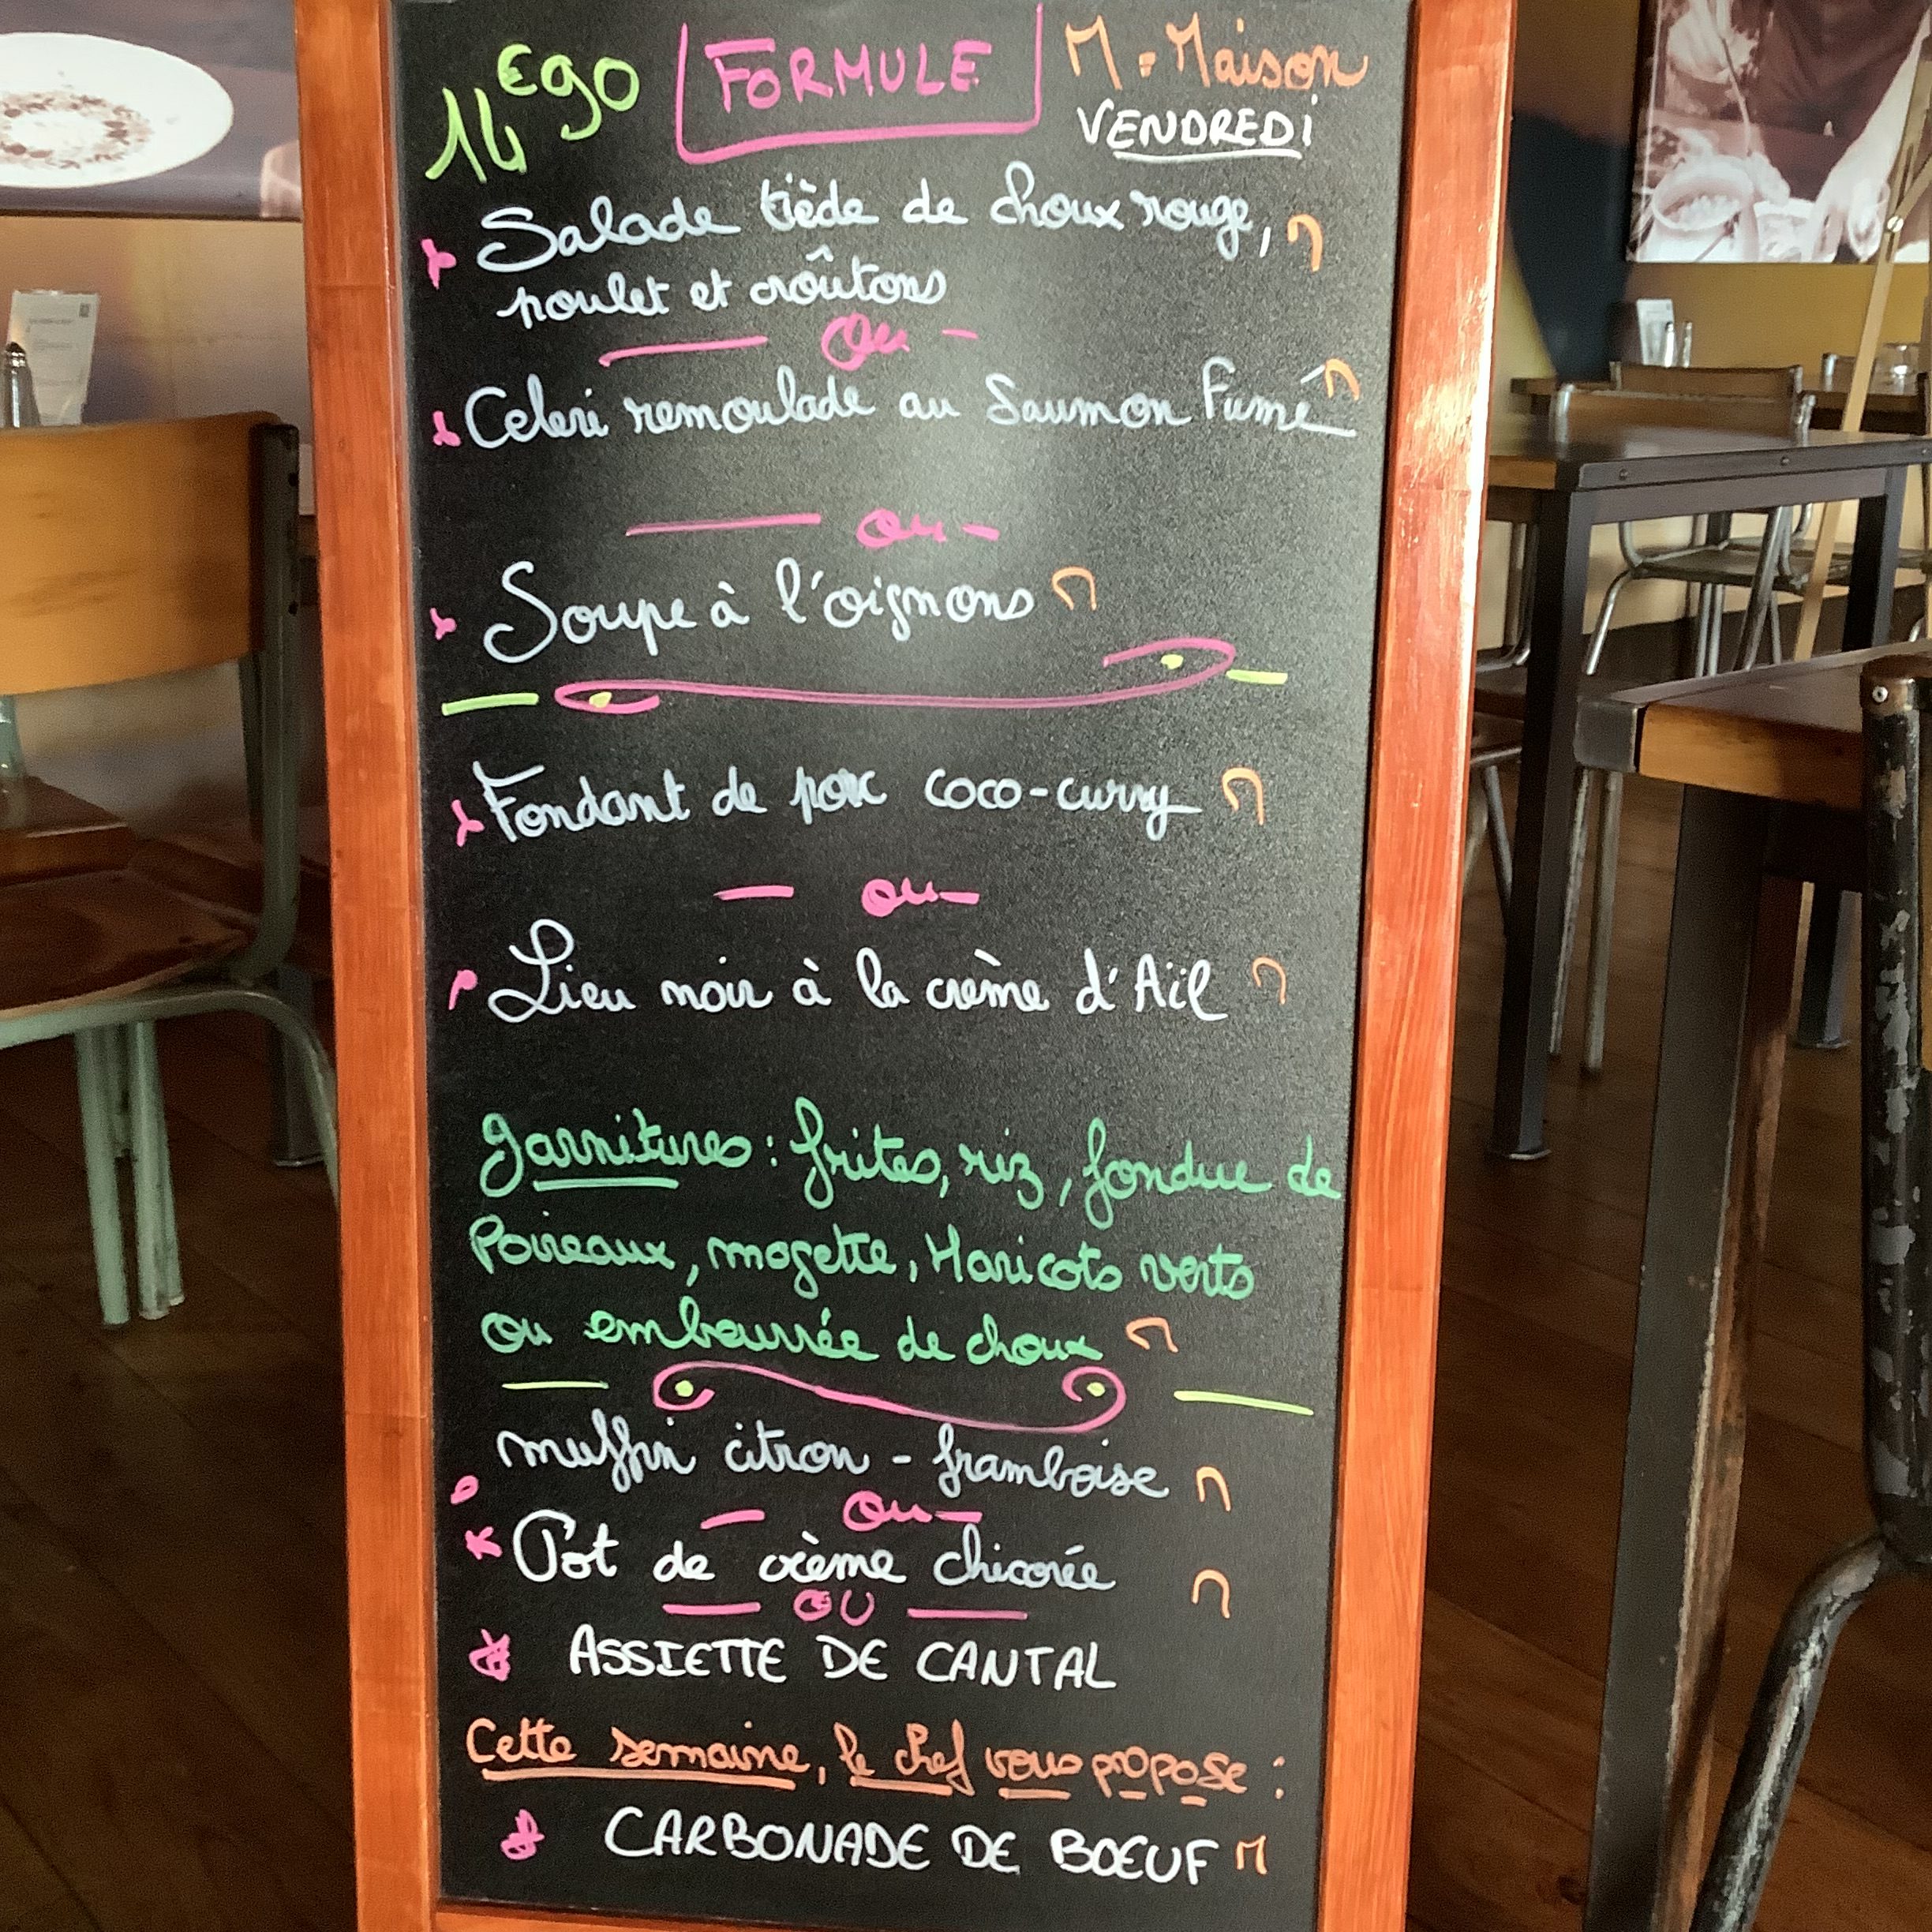 14€90 FORMULE M = Maison
VENDREDi
Salade tiède de choux rouge, M
poulet et croûtons
Ou
Celeri remoulade au Saumon Fumé M
ou
Soupe à l'oignons M
Fondant de porc coco-curry M
ou
Lieu noir à la crème d'Aïl M
garnitures : frites, riz, fondue de
Poireaux, mogette, Haricots verts
ou embeurrée de choux M
muffin citron - framboise M
Ou
Pot de crème chicorée M
OU
ASSIETTE DE CANTAL
Cette semaine, le chef vous propose :
CARBONADE DE BOEUF M